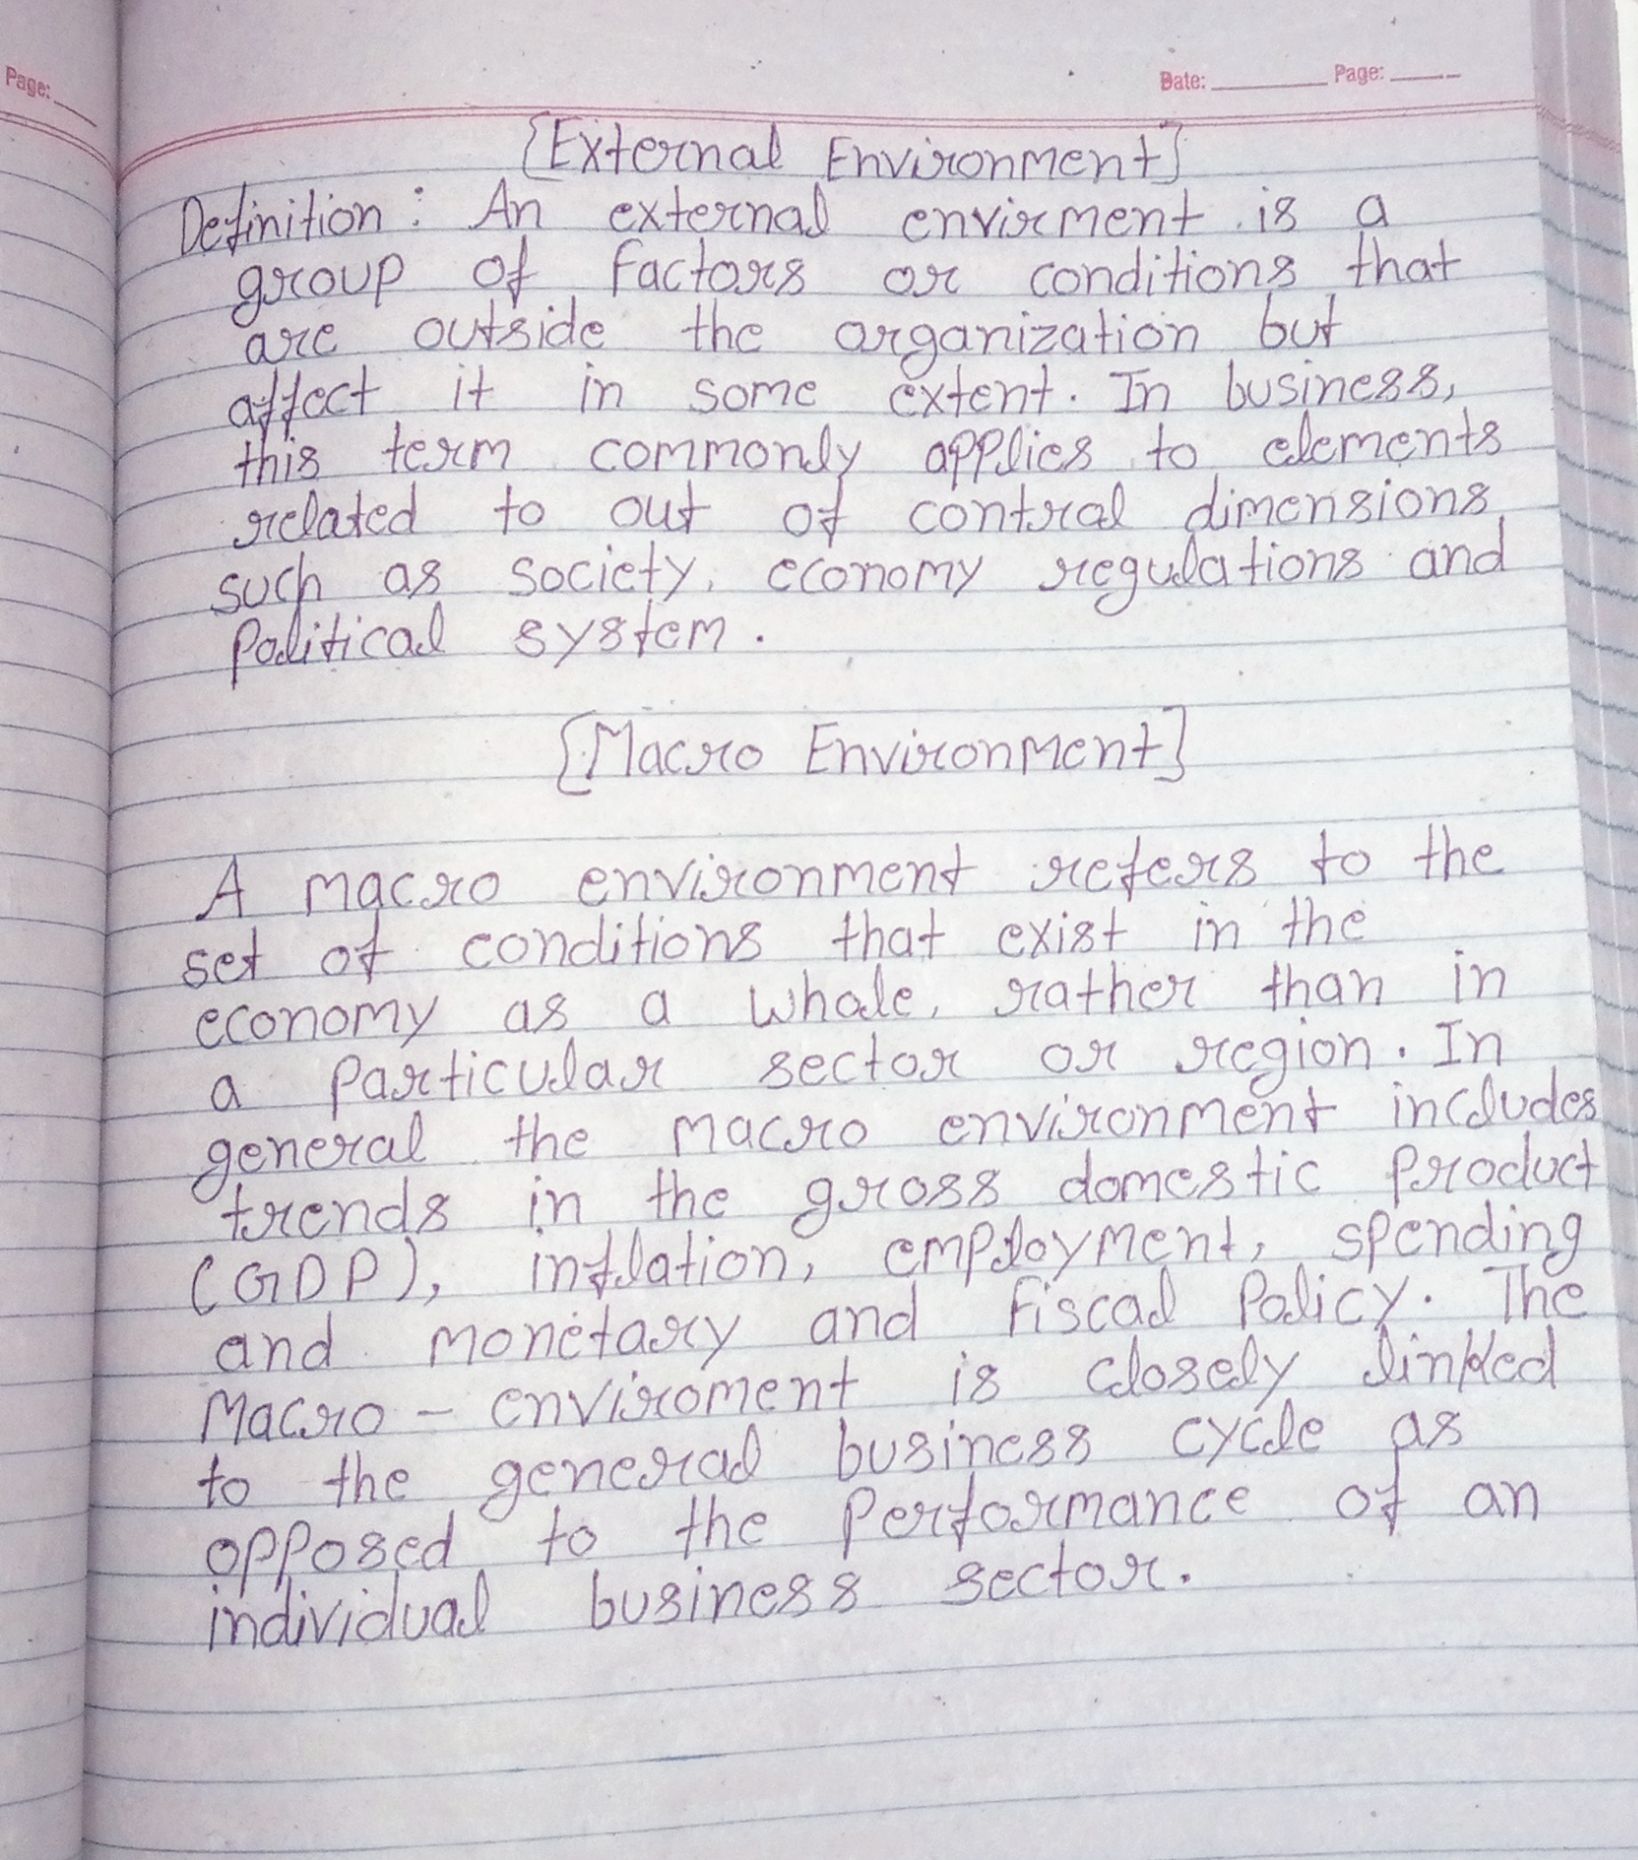 Page:
Date: Page:
[External Environment]
Definition : An external envirment is a
group of factors or conditions that
are outside the organization but
affect it in some extent. In business,
this term commonly applies to elements
related to out of control dimensions
such as society, economy regulations and
Political system.
[Macro Environment]
A macro environment refers to the
set of conditions that exist in the
economy as a whole, rather than in
a Particular sector or region. In
general the macro environment includes
trends in the gross domestic Product
(GDP), inflation, employment, spending
and monetary and Fiscal Policy. The
Macro - enviroment is closely linked
to the general business cycle as
opposed to the Performance of an
individual business sector.